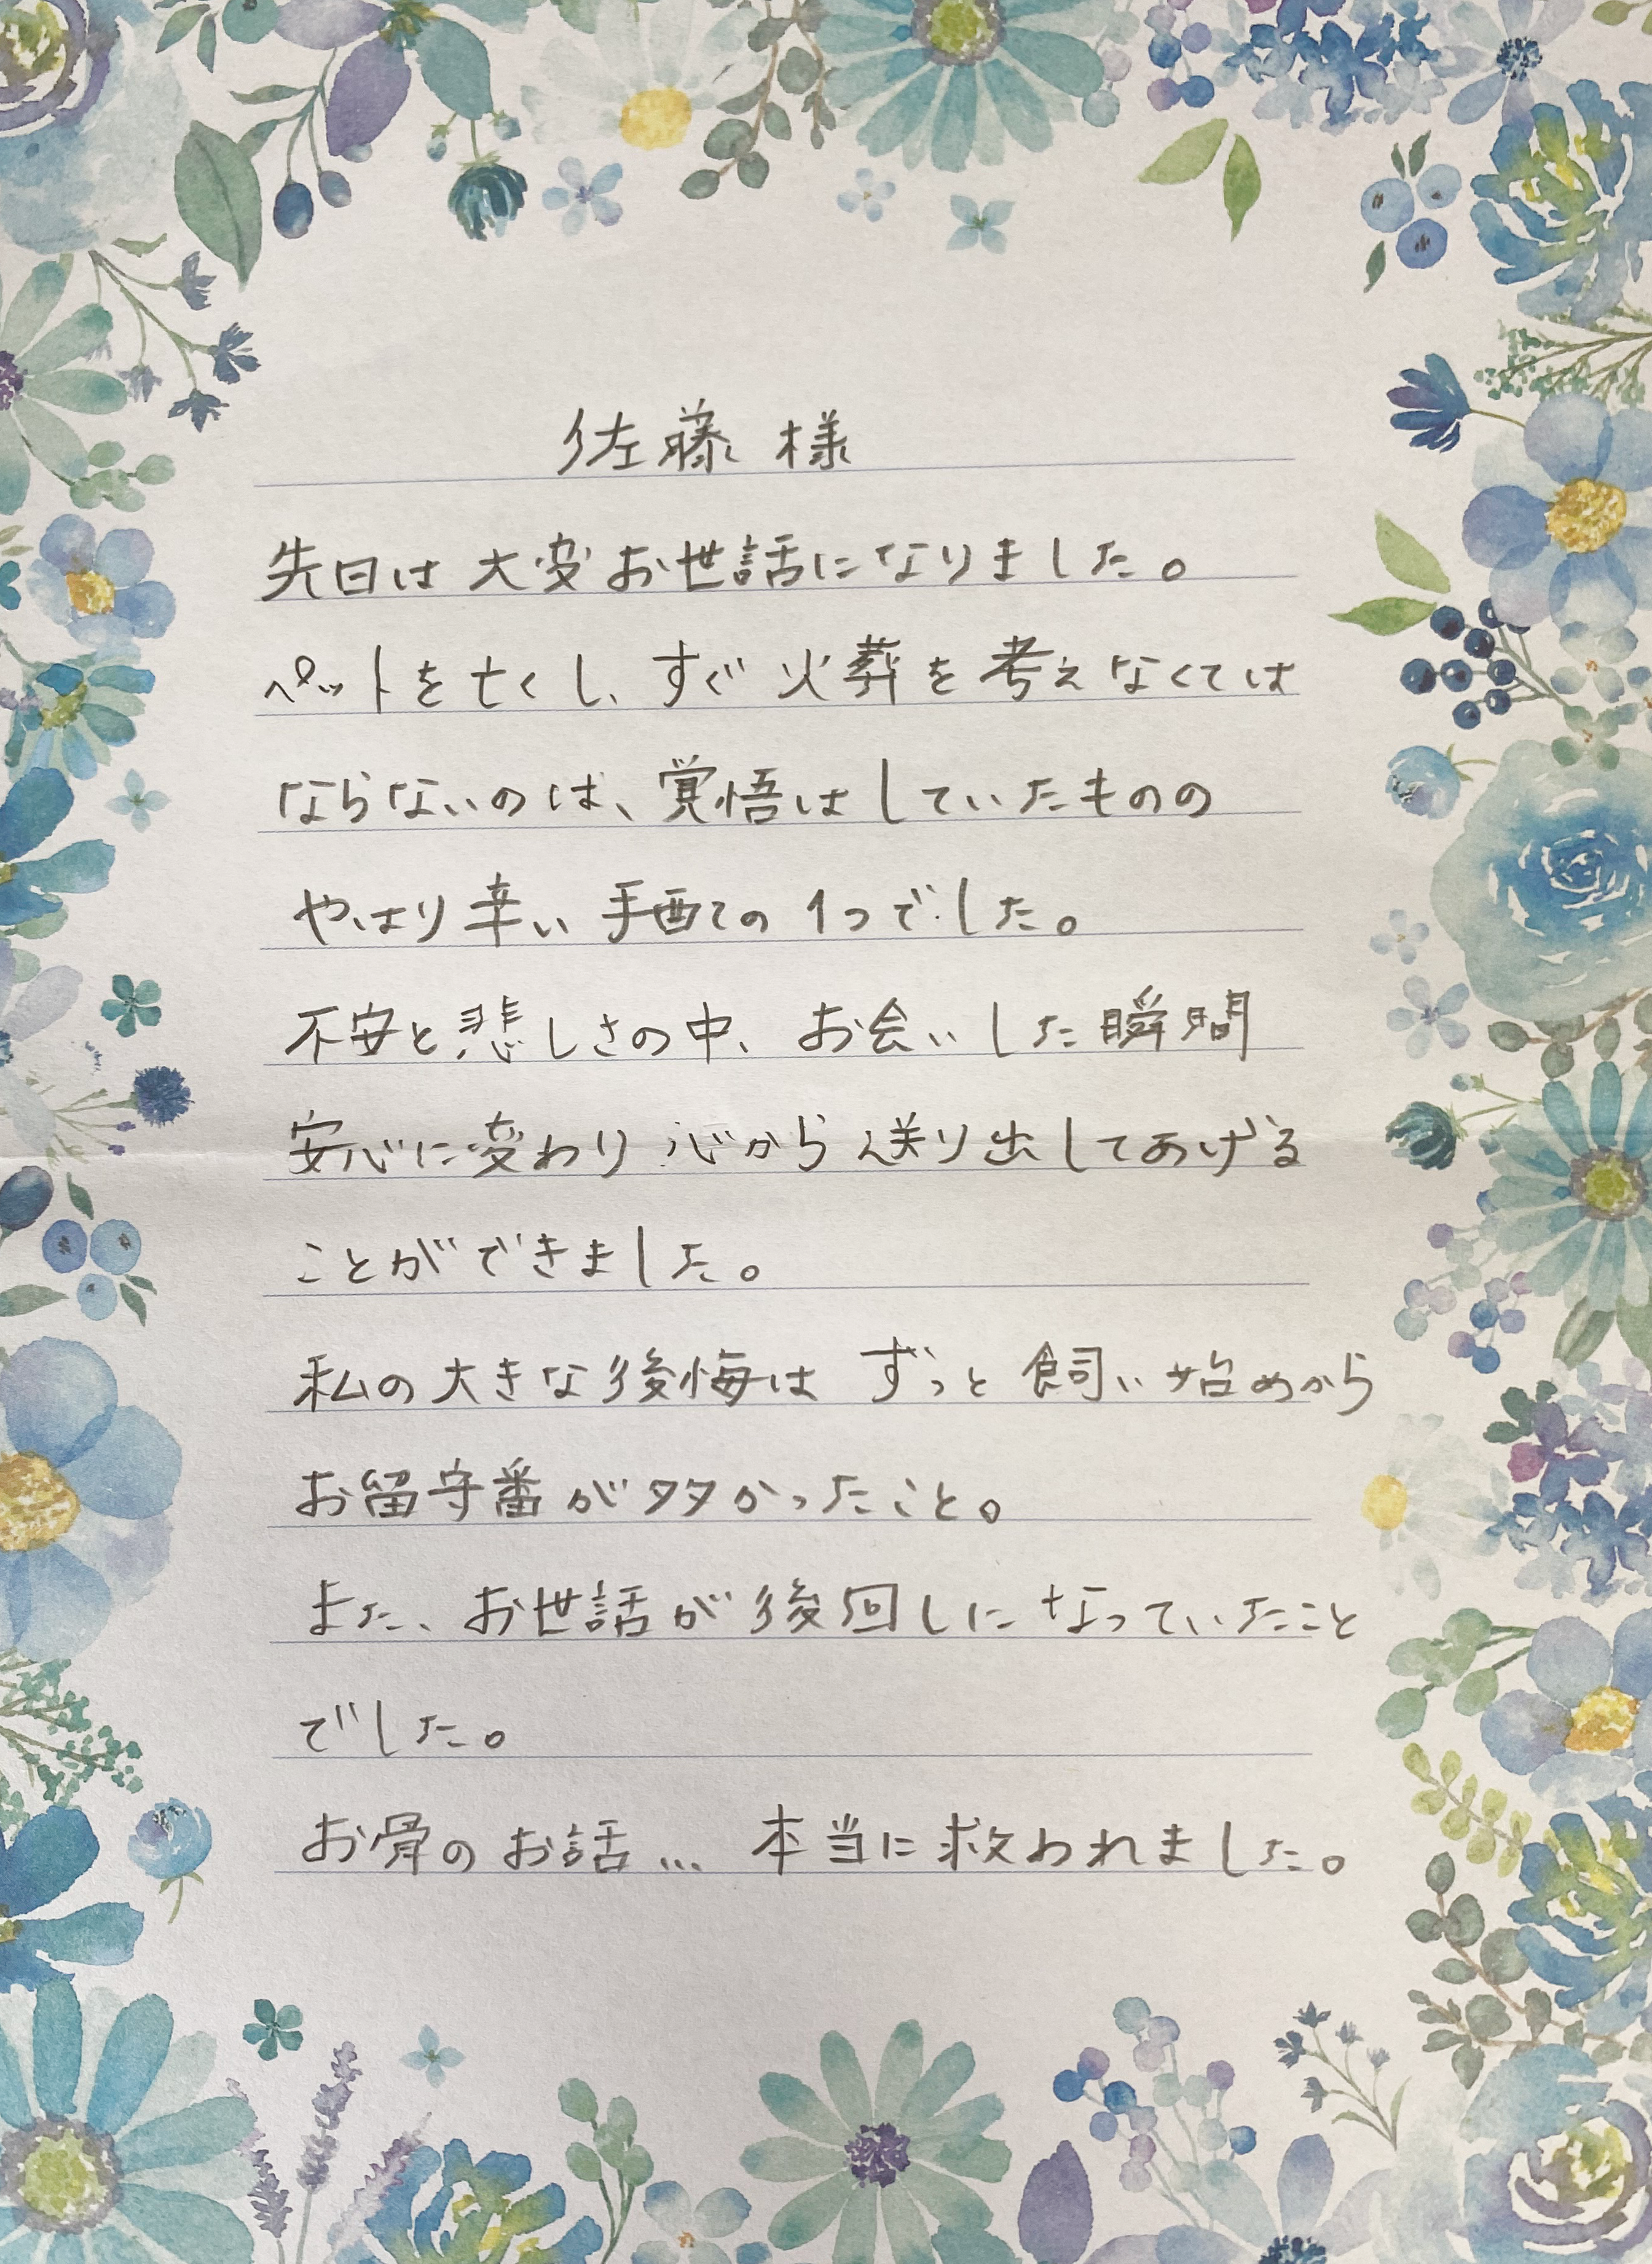 佐藤 様
先日は 大変お世話になりました。
ペットを亡くし、すぐ火葬を考えなくては
ならないのは、覚悟はしていたものの
やはり辛い 手配ての 1つでした。
不安と悲しさの中、お会いした瞬間
安心に変わり 心から送り出してあげる
ことができました。
私の大きな後悔は ずっと飼い始めから
お留守番が多かったこと。
また、お世話が後回しになっていたこと
でした。
お骨のお話… 本当に救われました。